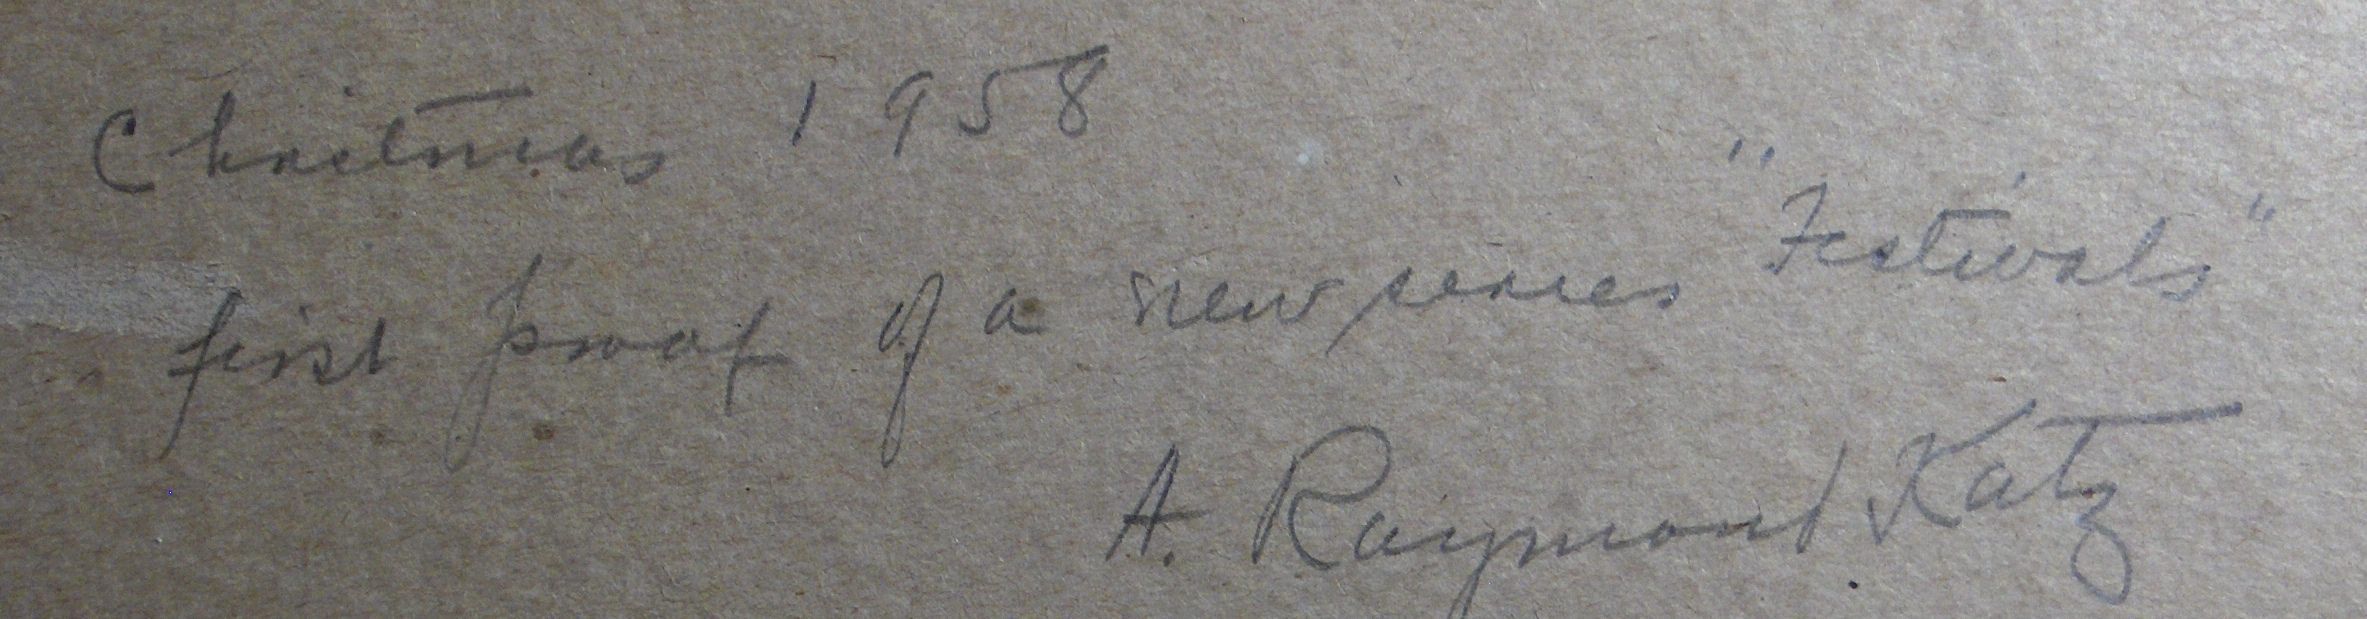 Christmas 1958
first proof of a new series "Festivals"
A. Raymond Katz